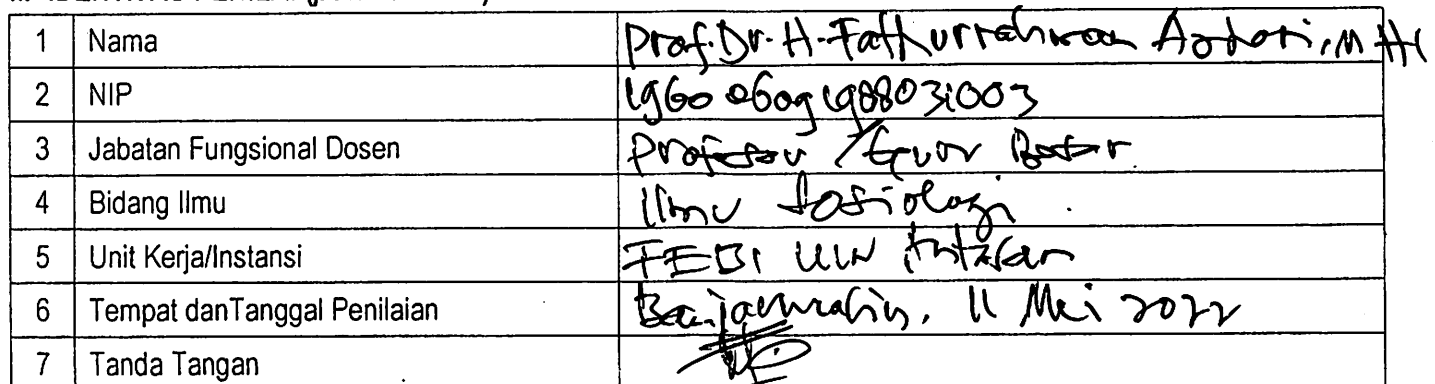 1 Nama Prof. Dr. H. Fathurrahman Azhari, M HI
2 NIP 196006091988031003
3 Jabatan Fungsional Dosen Profesor / Guru Besar
4 Bidang Ilmu Ilmu Sosiologi
5 Unit Kerja/Instansi FEBI UIN Antasari
6 Tempat danTanggal Penilaian Banjarmasin, 11 Mei 2022
7 Tanda Tangan